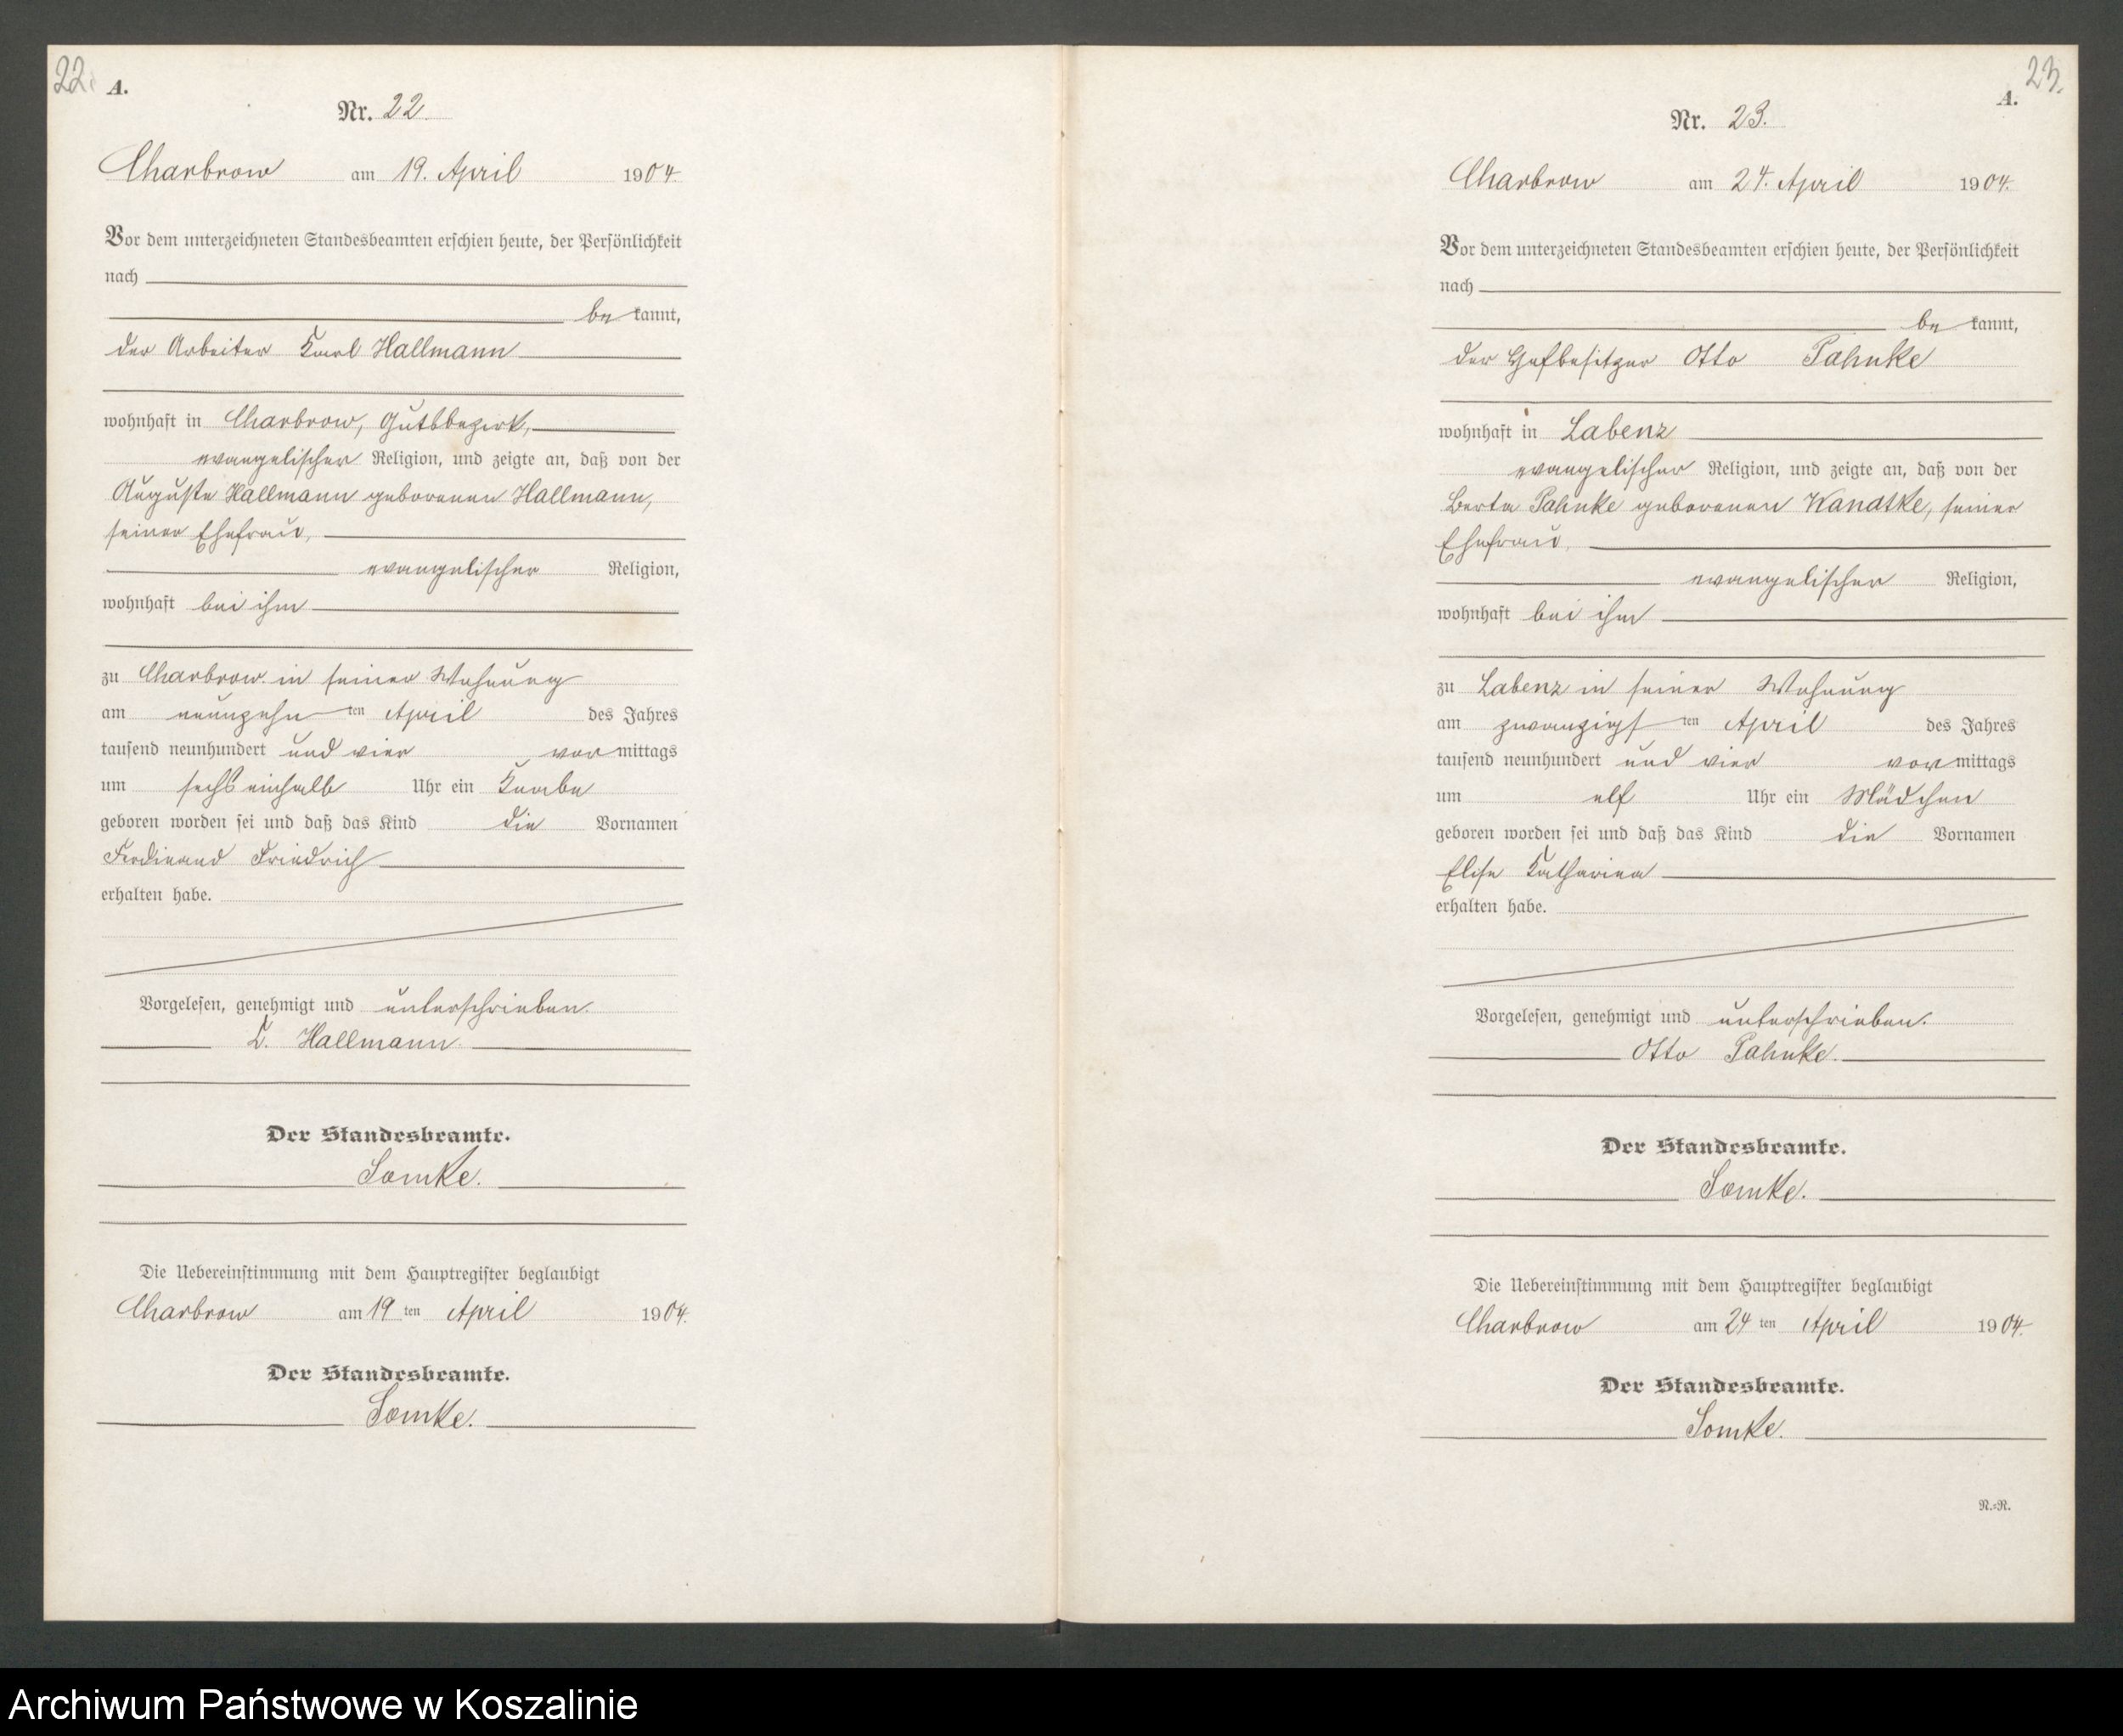 22.
A.
Nr. 22.
Charbrow am 19. April 1904.
Vor dem unterzeichneten Standesbeamten erschien heute, der Persönlichkeit
nach
be kannt,
der Arbeiter Karl Hallmann
wohnhaft in Charbrow, Gutsbezirk,
evangelischer Religion, und zeigte an, daß von der
Auguste Hallmann geborenen Hallmann,
seiner Ehefrau,
evangelischer Religion,
wohnhaft bei ihm
zu Charbrow in seiner Wohnung
am neunzehn ten April des Jahres
tausend neunhundert und vier vor mittags
um sechs einhalb Uhr ein Knabe
geboren worden sei und daß das Kind die Vornamen
Ferdinand Friedrich
erhalten habe.
Vorgelesen, genehmigt und unterschrieben.
K. Hallmann.
Der Standesbeamte.
Somke.
Die Uebereinstimmung mit dem Hauptregister beglaubigt
Charbrow am 19 ten April 1904.
Der Standesbeamte.
Somke.
23.
A.
Nr. 23.
Charbrow am 24. April 1904.
Vor dem unterzeichneten Standesbeamten erschien heute, der Persönlichkeit
nach
be kannt,
der Hofbesitzer Otto Pahnke
wohnhaft in Labenz
evangelischer Religion, und zeigte an, daß von der
Berta Pahnke geborenen Wandtke, seiner
Ehefrau,
evangelischer Religion,
wohnhaft bei ihm
zu Labenz in seiner Wohnung
am zwanzigst ten April des Jahres
tausend neunhundert und vier vor mittags
um elf Uhr ein Mädchen
geboren worden sei und daß das Kind die Vornamen
Elise Katharina
erhalten habe.
Vorgelesen, genehmigt und unterschrieben.
Otto Pahnke.
Der Standesbeamte.
Somke.
Die Uebereinstimmung mit dem Hauptregister beglaubigt
Charbrow am 24 ten April 1904.
Der Standesbeamte.
Somke.
R.=R.
Archiwum Państwowe w Koszalinie